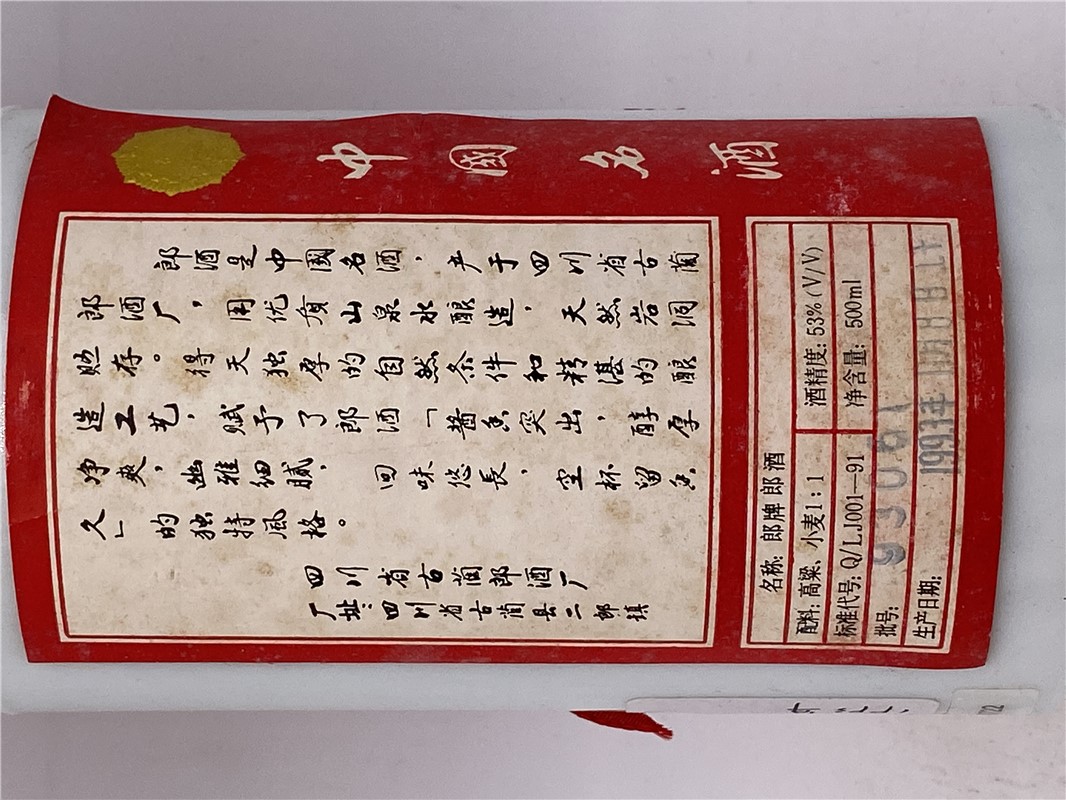 中國名酒
郎酒是中國名酒，产于四川省古藺
郎酒厂，用优质山泉水酿造，天然岩洞
贮存。得天独厚的自然条件和精湛的酿
造工艺，赋予了郎酒「酱香突出，醇厚
净爽，幽雅细腻，回味悠長，空杯留香
久」的独特风格。
四川省古藺郎酒厂
厂址：四川省古藺县二郎镇
名称: 郎牌郎酒
配料: 高粱、小麦1:1 酒精度: 53%(V/V)
标准代号: Q/LJ001—91 净含量: 500ml
批号:
生产日期: 1993年